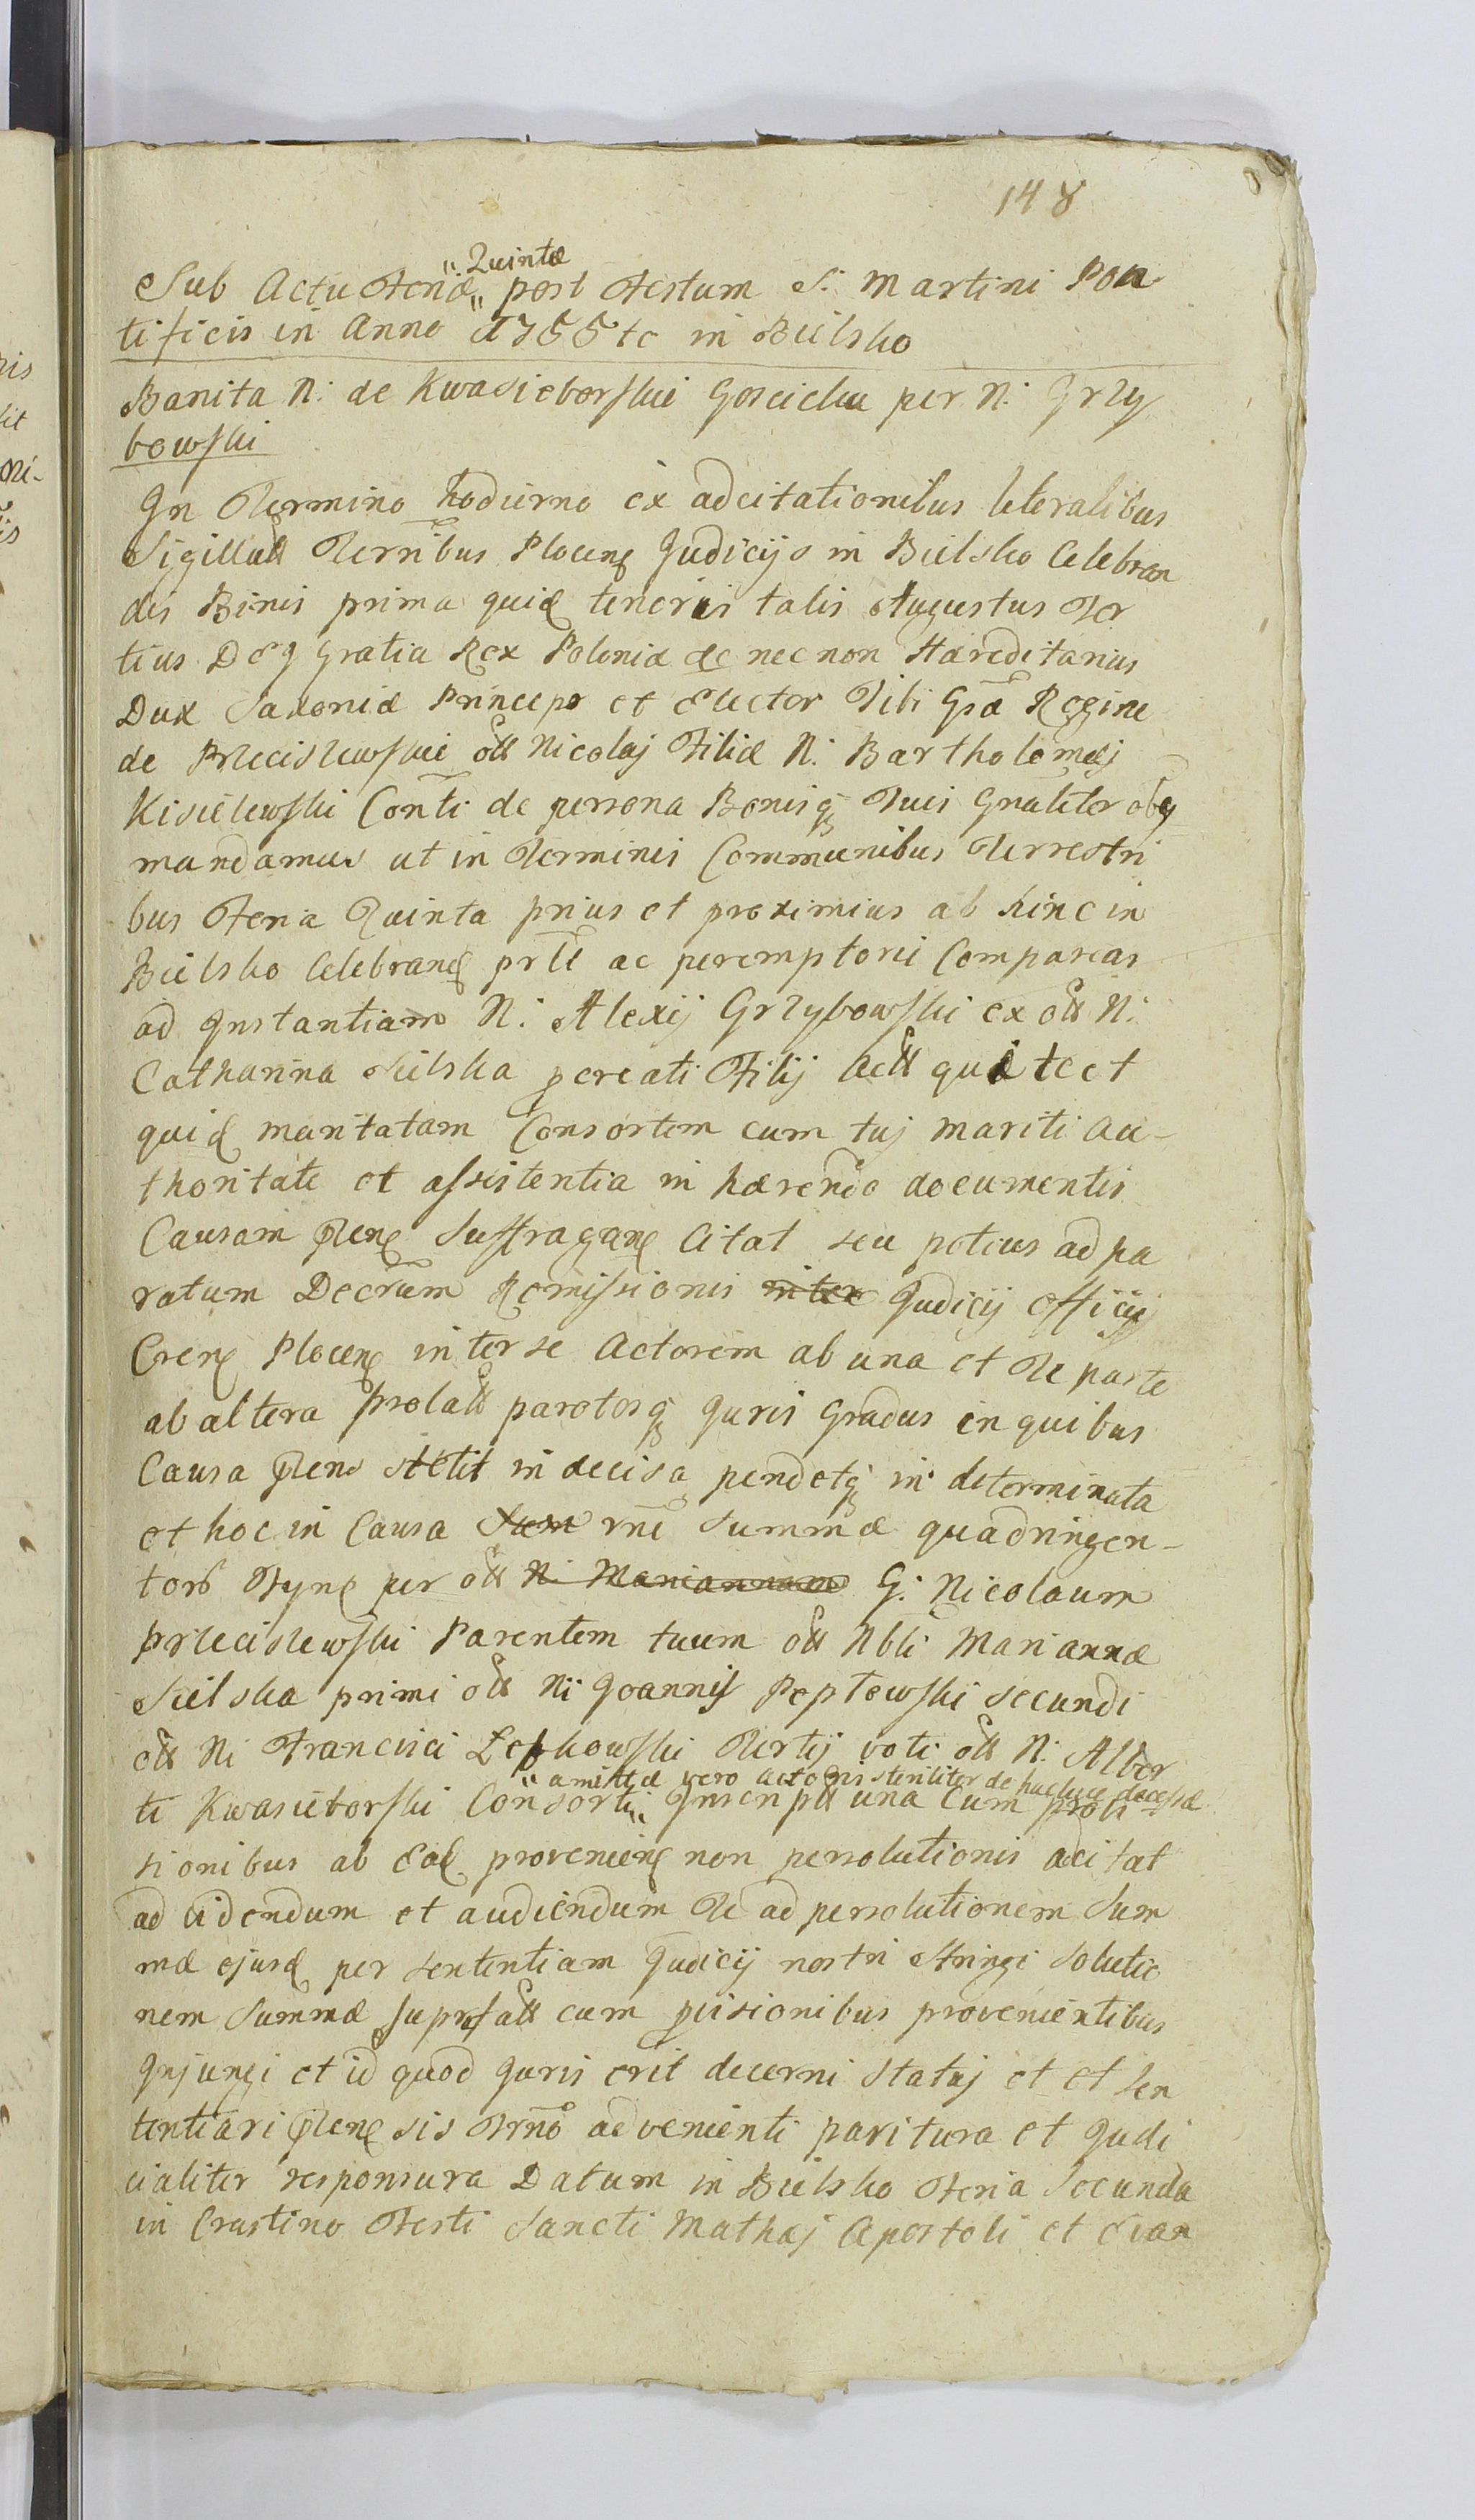 148
Sub Actu Feriæ Quintæ post Festum S. Martini Pon
tificis in Anno 1755to in Bielsko
Banita N. de Kwasieborskie Goscicka per N. Grzy
bowski
In Termino hodierno ex adcitationibus literalibus
Sigillatt Terribus Plocen Judicijs in Bielsko Celebran
dis Binis prima quid tenoris talis Augustus Ter
tius DEy Gratia Rex Poloniæ &c nec non Hæreditarius
Dux Saxoniæ Princeps et Elector Tibi Gsæ Regine
de Przecislewskie ott Nicolaj Filiæ N. Bartholomæj
Kisielewski Conti de persona Bonisq Tuis Gnaliter oby
mandamus ut in Terminis Communibus Terrestri
bus Feria Quinta prius et proximius ab hinc in
Bielsko Celebrand prlr ac peremptorie Compareas
ad Instantiam N. Alexij Grzybowski ex ott N.
Catharina Sielska pcreati Filij Actt qui te et
quid maritatam Consortem cum tuj mariti au-
thoritate et assistentia in hærendo documentis
Causam pten Suffragan Citat seu potius ad pa
ratum Decrum Remissionis inter Judicij officij
Cren Plocen inter se Actorem ab una et Te parte
ab altera prolatt paratosq Juris Gradus in quibus
Causa pten stetit indecisa pendetq in determinata
et hoc in Causa Sum rne Summæ quadringen-
torum Tyn per ott N. Mariannam G. Nicolaum
Przecislewski Parentem tuum ott Nbli Mariannæ
Sielska primi ott Ni Joannis Peptowski secundi
ott Ni Francisci Lepkowski Tertij voti ott N. Alber
amittæ vero actoris steriliter de hac luce decessæ
ti Kwasieborski Consorti Inscriptt una Cum provi
sionibus ab Ead provenien non persolutionis acitat
ad videndum et audiendum Te ad persolutionem Sum
mæ ejusd per sententiam Judicij nostri Stringi Solutio
nem Summæ suprasatt cum pvisionibus provenientibus
Injungi et id quod Juris erit decerni Statuj et et sen
tentiari pten sis Trno advenienti paritura et Judi
cialiter responsura Datum in Bielsko Feria Secunda
in Crastino Festi Sancti Mathæj Apostoli et Evan